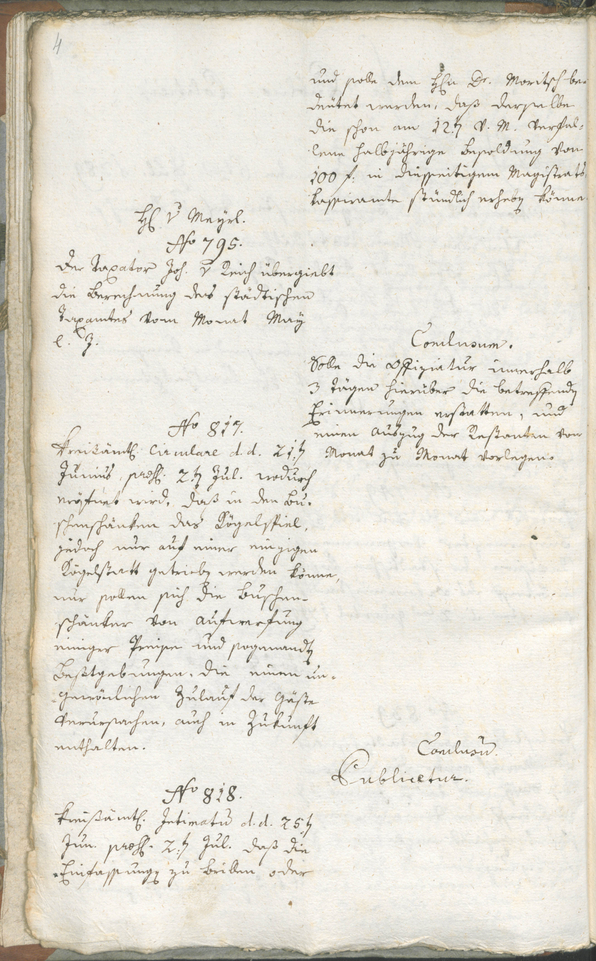 4
und solle dem Hln Dr. Moritsch be-
deutet werden, daß derselbe
die schon am 12t v. M. verfal-
lene halbjährige Besoldung von
100 f. in diesseitigem Magistrats
stündlich erheben könne.
H. v Mayrl.
No 795.
Der Taxator Joh. v Reich übergiebt
die Berechnung des städtischen
Taxamtes vom Monat May
l. J.
Conclusum.
Solle die Offiziatur innerhalb
3 Tägen hierüber die betreffenden
Erinnerungen erstatten, und
einen Auszug der Restanten von
Monat zu Monat vorlegen.
No 817.
Kreisämtl. Circulare d. d. 21t
Junius, präs. 2t Jul. wodurch
eröfnet wird, daß in den Bu-
schenschänken das Kögelspiel,
jedoch nur auf einer einzigen
Kögelstatt getrieben werden könne,
nur sollen sich die Buschen-
schänker von Aufwerfung
einiger Preise und sogenannten
Bestgebungen, die einen un-
gewöhnlichen Zulauf der Gäste
verursachen, auch in Zukunft
enthalten.
Conclusum.
Publicetur.
No 818.
Kreisämtl. Intimatum d. d. 25t
Jun. präs. 2t Jul. daß die
Einfassungen zu Brillen oder